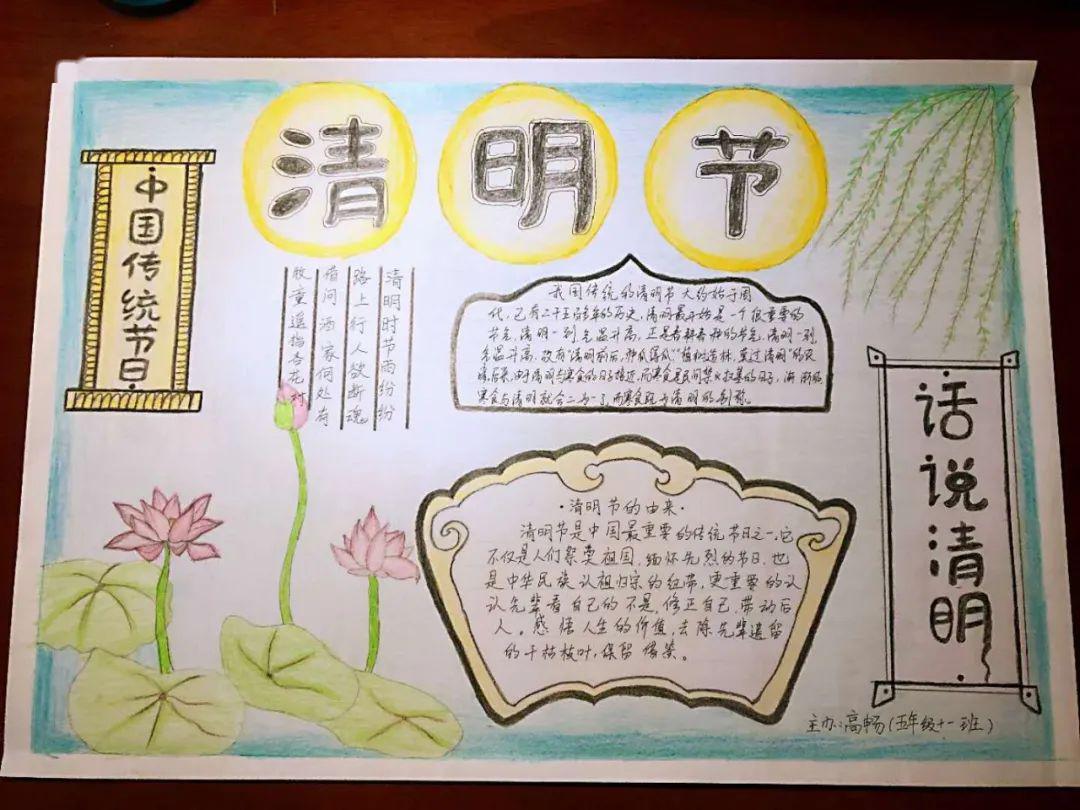 清明节
中国传统节日
清明时节雨纷纷
路上行人欲断魂。
借问酒家何处有
牧童遥指杏花村
我国传统的清明节大约始于周
代,已有二千五百多年的历史,清明最开始是一个很重要的
节气,清明一到,气温升高,正是春耕春种的时节,清明一到
气温升高,故有"清明前后,种瓜得瓜""植树造林,莫过清明"的农
谚后来,由于清明与寒食的日子接近,而寒食是民间禁火扫墓的日子,渐渐的
寒食与清明就合二为一了,而寒食既为清明的别称。
·清明节的由来·
清明节是中国最重要的传统节日之一,它
不仅是人们祭奠祖国,缅怀先烈的节日,也
是中华民族认祖归宗的纽带,更重要的认
认先辈看自己的不是,修正自己,带动后
人。感悟人生的价值,去除先辈遗留
的干枯枝叶,保留
话说清明
主办:高畅(五年级十一班)